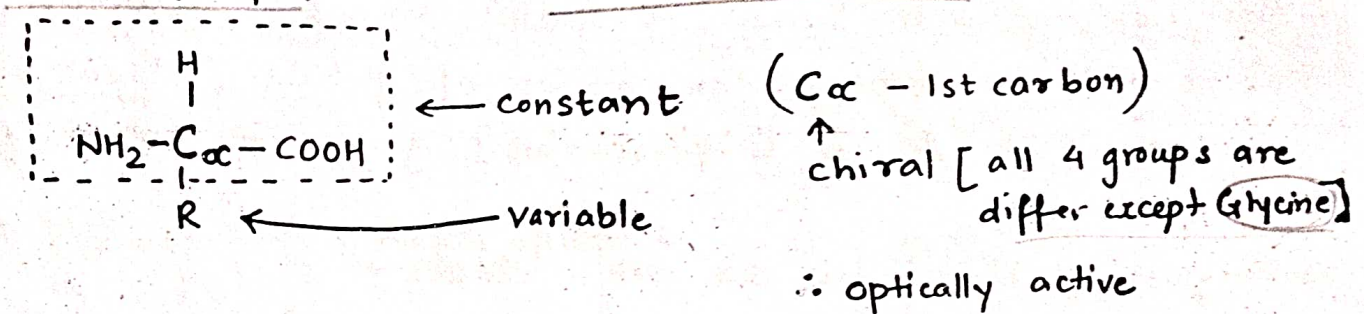 H
NH₂-Cα-COOH
R
← constant
← variable
(Cα - 1st carbon)
↑
chiral [all 4 groups are
differ except Glycine]
∴ optically active